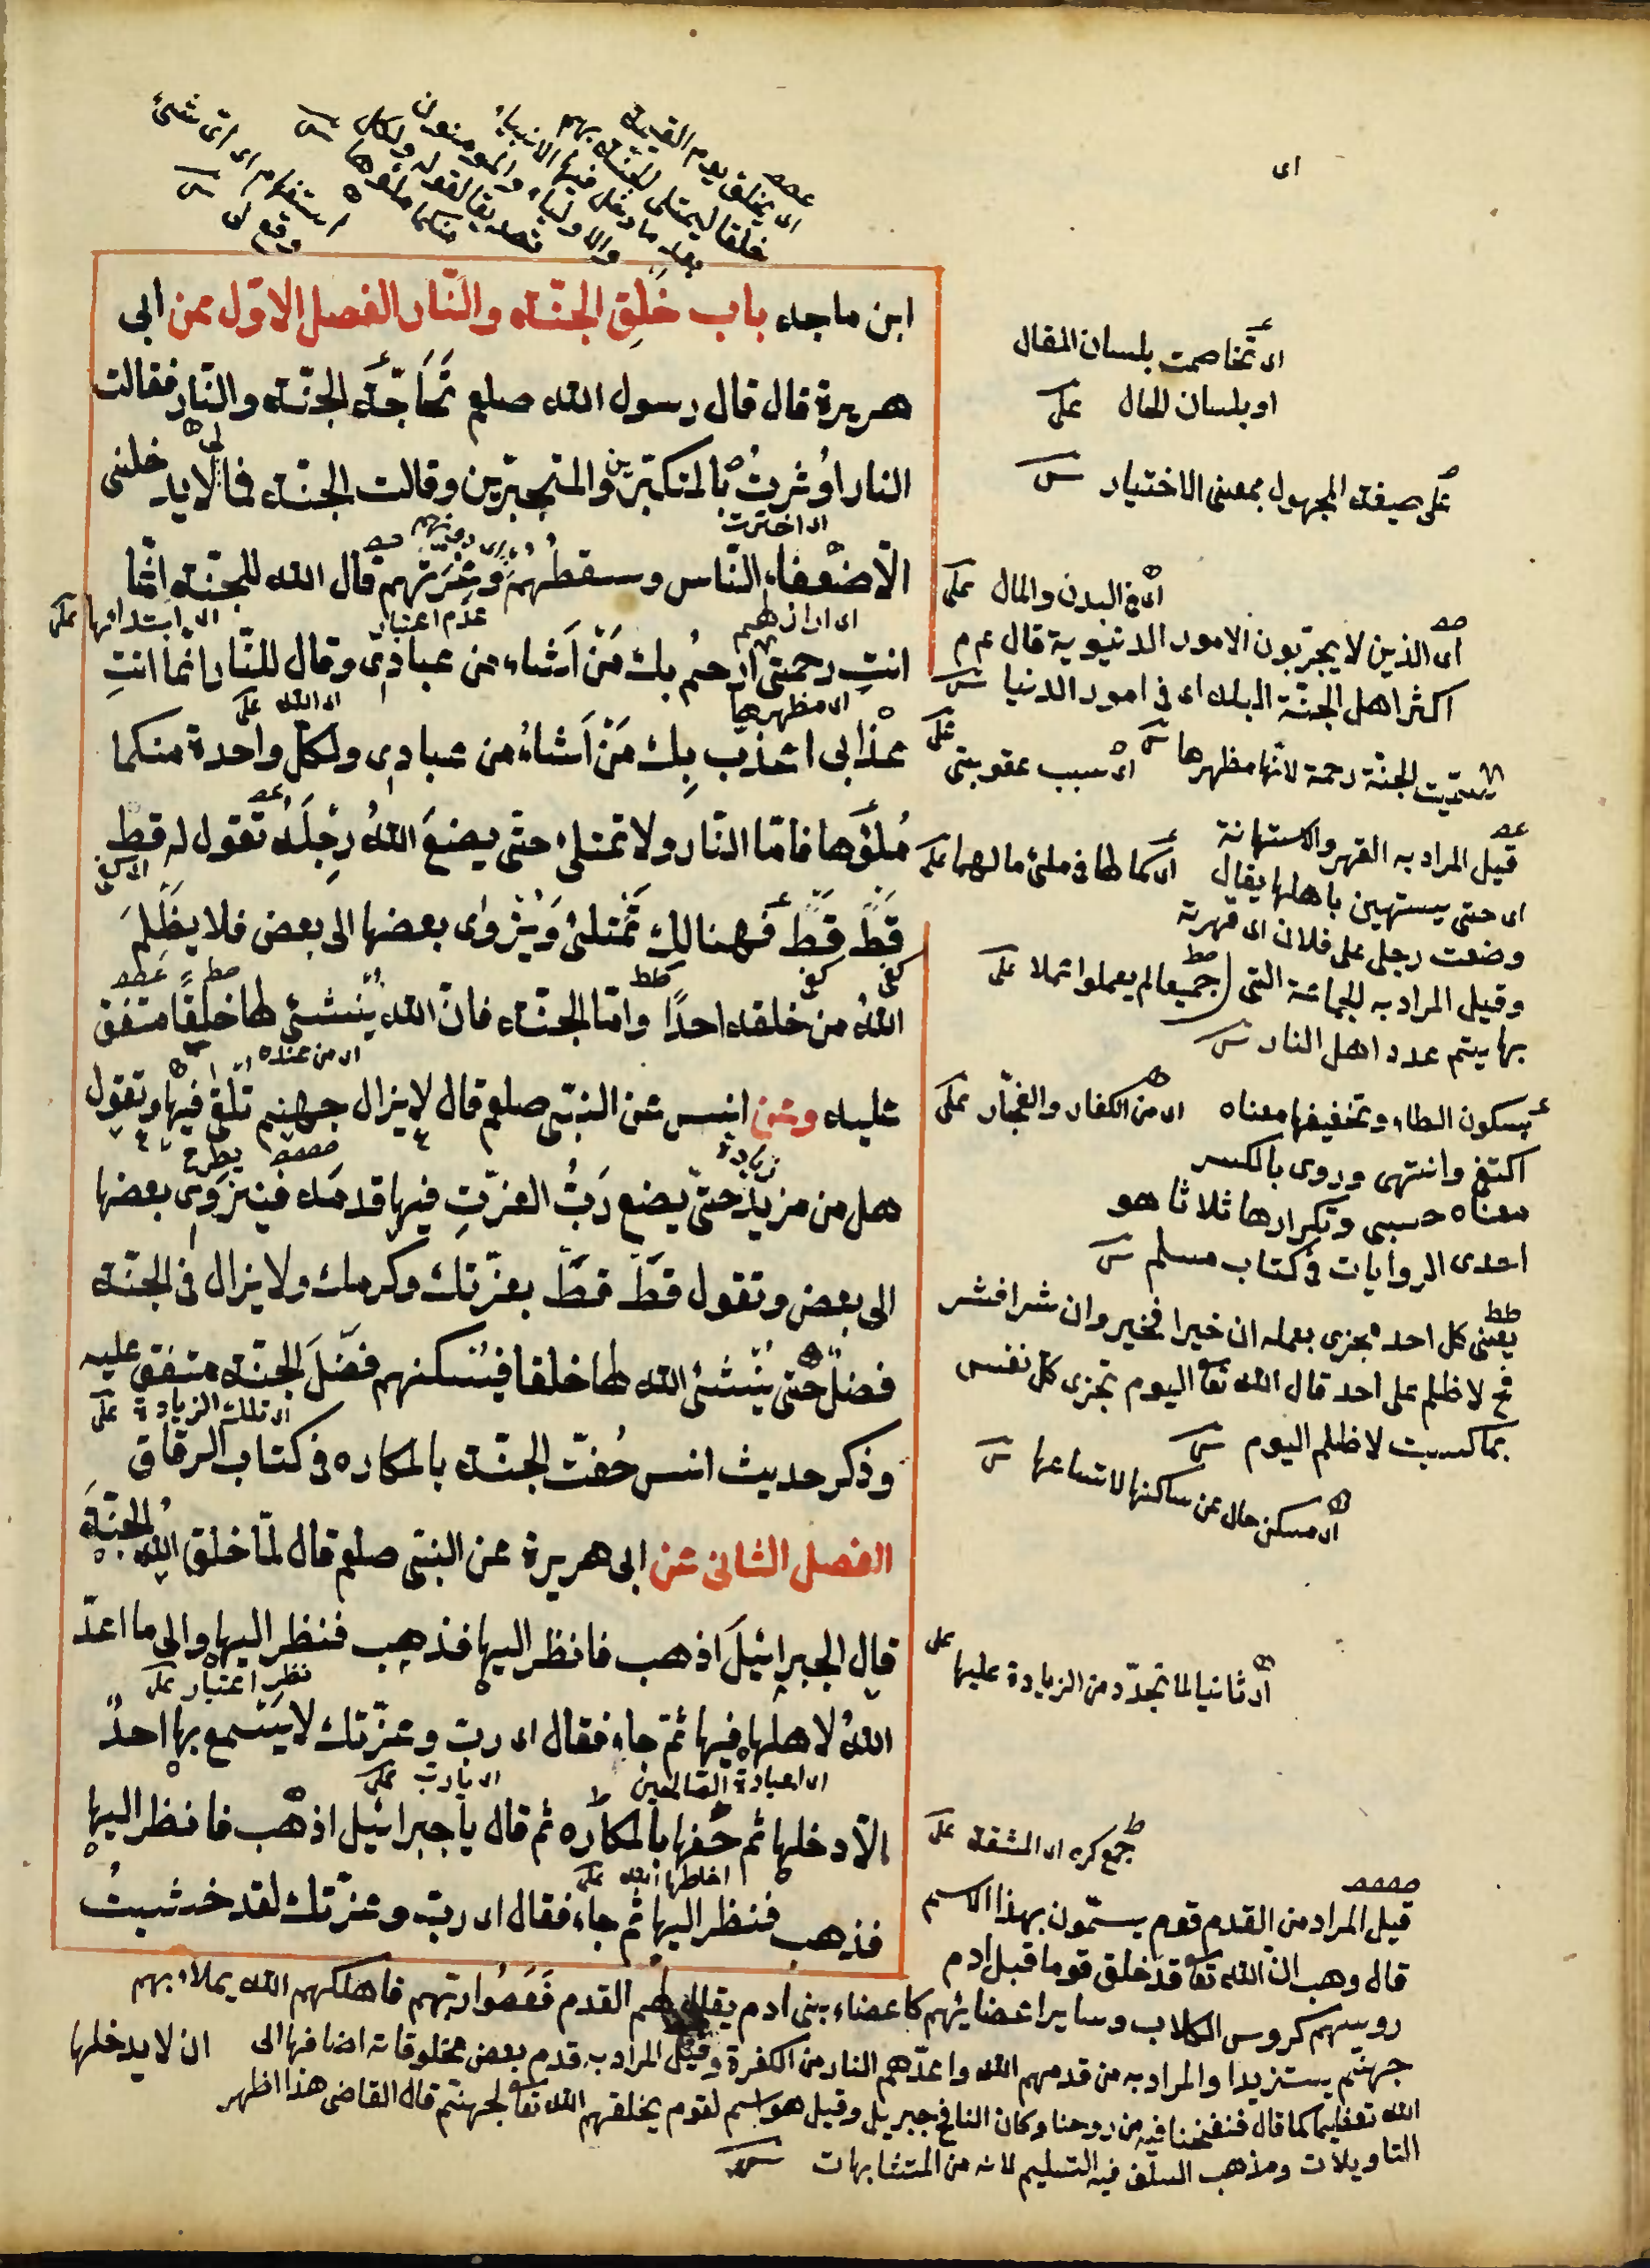 اى يخلق يوم القيمة
خلقا ليمتلى للجنة بهم
بعد ما دخل فيها الانبياء
والاولياء والمومنون
تصديقا لقوله ولكل
منكما ملؤها
استفهام اى اىّ شئ
وقع لى
اى
ابن ماجه باب خلق الجنّة والنّار الفصل الاوّل عن ابى
هريرة قال قال رسول الله صلعم تَحَاجّتِ الجنّة والنّار فقالت
النار اُوثرتُ بالمتكبّرين والمتجبّرين وقالت الجنّة فما لى لا يدخلنى
اى اخترت
الّا ضعفاء النّاس وسقطُهُم وغِرّتهم قال الله للجنّة انّما
عدم اعتبار
انتِ رحمتى ارحمُ بك مَنْ اَشاء من عبادى وقال للنّار انما انتِ
اى مظهرها
اى الله
عذابى اعذّب بِكِ مَنْ اَشاءُ من عبادى ولكلّ واحدة منكما
مُلؤُها فامّا النّار ولا تمتلئ حتّى يضعَ اللهُ رِجلَهُ تقول له قط
قَطْ قَطْ فهنالك تمتلئ ويُزْوٰى بعضها الى بعض فلا يظلِمُ
كفى كفى
اللهُ من خلقه احدًا وامّا الجنّة فانّ الله يُنشئ لها خلقًا متفق
اى من عنده
عليه وعن انس عن النبىّ صلعم قال لا يزال جهنم تلقى فيها وتقول
زيادة
يطرح
هل من مزيد حتّى يضع رَبُّ العزّتِ فيها قدمه فينزوى بعضها
الى بعض وتقول قطْ قطْ بعزّتك وكرمك ولا يزال فى الجنّة
فضلٌ حتّى يُنْشئ الله لها خلقا فيُسكنهم فضلَ الجنّة متفق عليه
اى تلك الزيادة على
وذكر حديث انس حُفّت الجنّة بالمكاره فى كتاب الرقاق
الفصل الثانى عن ابى هريرة عن النبىّ صلعم قال لمّا خلق اللهُ الجنّةَ
قال لجبرائيلَ اذهب فانظر اليها فذهب فنظر اليها والى ما اعدّ
نظر اعتبار على
اللهُ لاهلها فيها ثمّ جاء فقال اى ربّ وعزّتك لا يَسمع بها احدٌ
اى يا ربّ على
الّا دخلها ثم حُفّها بالمكاره ثم قال يا جبرائيل اذهب فانظر اليها
فذهب فنظر اليها ثم جاء فقال اى ربّ وعزّتك لقد خشيتُ
ان لا يدخلها
اى تخاصمت بلسان المقال
او بلسان الحال على
على صيغة المجهول بمعنى الاختيار
اى فى البدن والمال على
اى الذين لا يجرّبون الامور الدنيوية قال ع م
اكثر اهل الجنّة البله اى فى امور الدنيا
سمّيت الجنّة رحمة لانّها مظهرها
اى سبب عقوبتى على
قيل المراد به القهر والاستهانة
اى حتى يستهين باهلها يقال
وضعت رجلى على فلان اى قهرته
وقيل المراد به الجماعة التى
بها يتم عدد اهل النار
جميعا لم يعملوا عملا على
بسكون الطاء وتخفيفها معناه
اكتفى وانتهى وروى بالكسر
معناه حسبى وتكرارها ثلاثا هو
احدى الروايات فى كتاب مسلم
اى من الكفار والفجّار على
يعنى كل احد يجزى بعمله ان خيرا فخير وان شرا فشر
لا ظلم على احد قال الله تعا اليوم تجزى كل نفس
بما كسبت لا ظلم اليوم
اى مسكن خال عن ساكنها لاتساعها
اى ثانيا لما تجدّد من الزيادة عليها على
جمع كره اى المشقة على
قيل المراد من القدم قوم يسمّون بهذا الاسم
قال وهب انّ الله تعا قد خلق قوما قبل ادم
روسهم كروس الكلاب وساير اعضايهم كاعضاء بنى ادم يقال لهم القدم فَعَصُوا ربّهم فاهلكهم الله يملاء بهم
جهنّم يستزيدا والمراد به من قدمهم الله واعدّهم النار من الكفرة وقيل المراد به قدم بعض مخلوقاته اضافها الى
الله تعظيما كما قال فنفخنا فيه من روحنا وكان النافخ جبريل وقيل هو اسم لقوم يخلقهم الله تعا لجهنّم قال القاضى هذا اظهر
التاويلات ومذهب السلف فيه التسليم لانه من المتشابهات